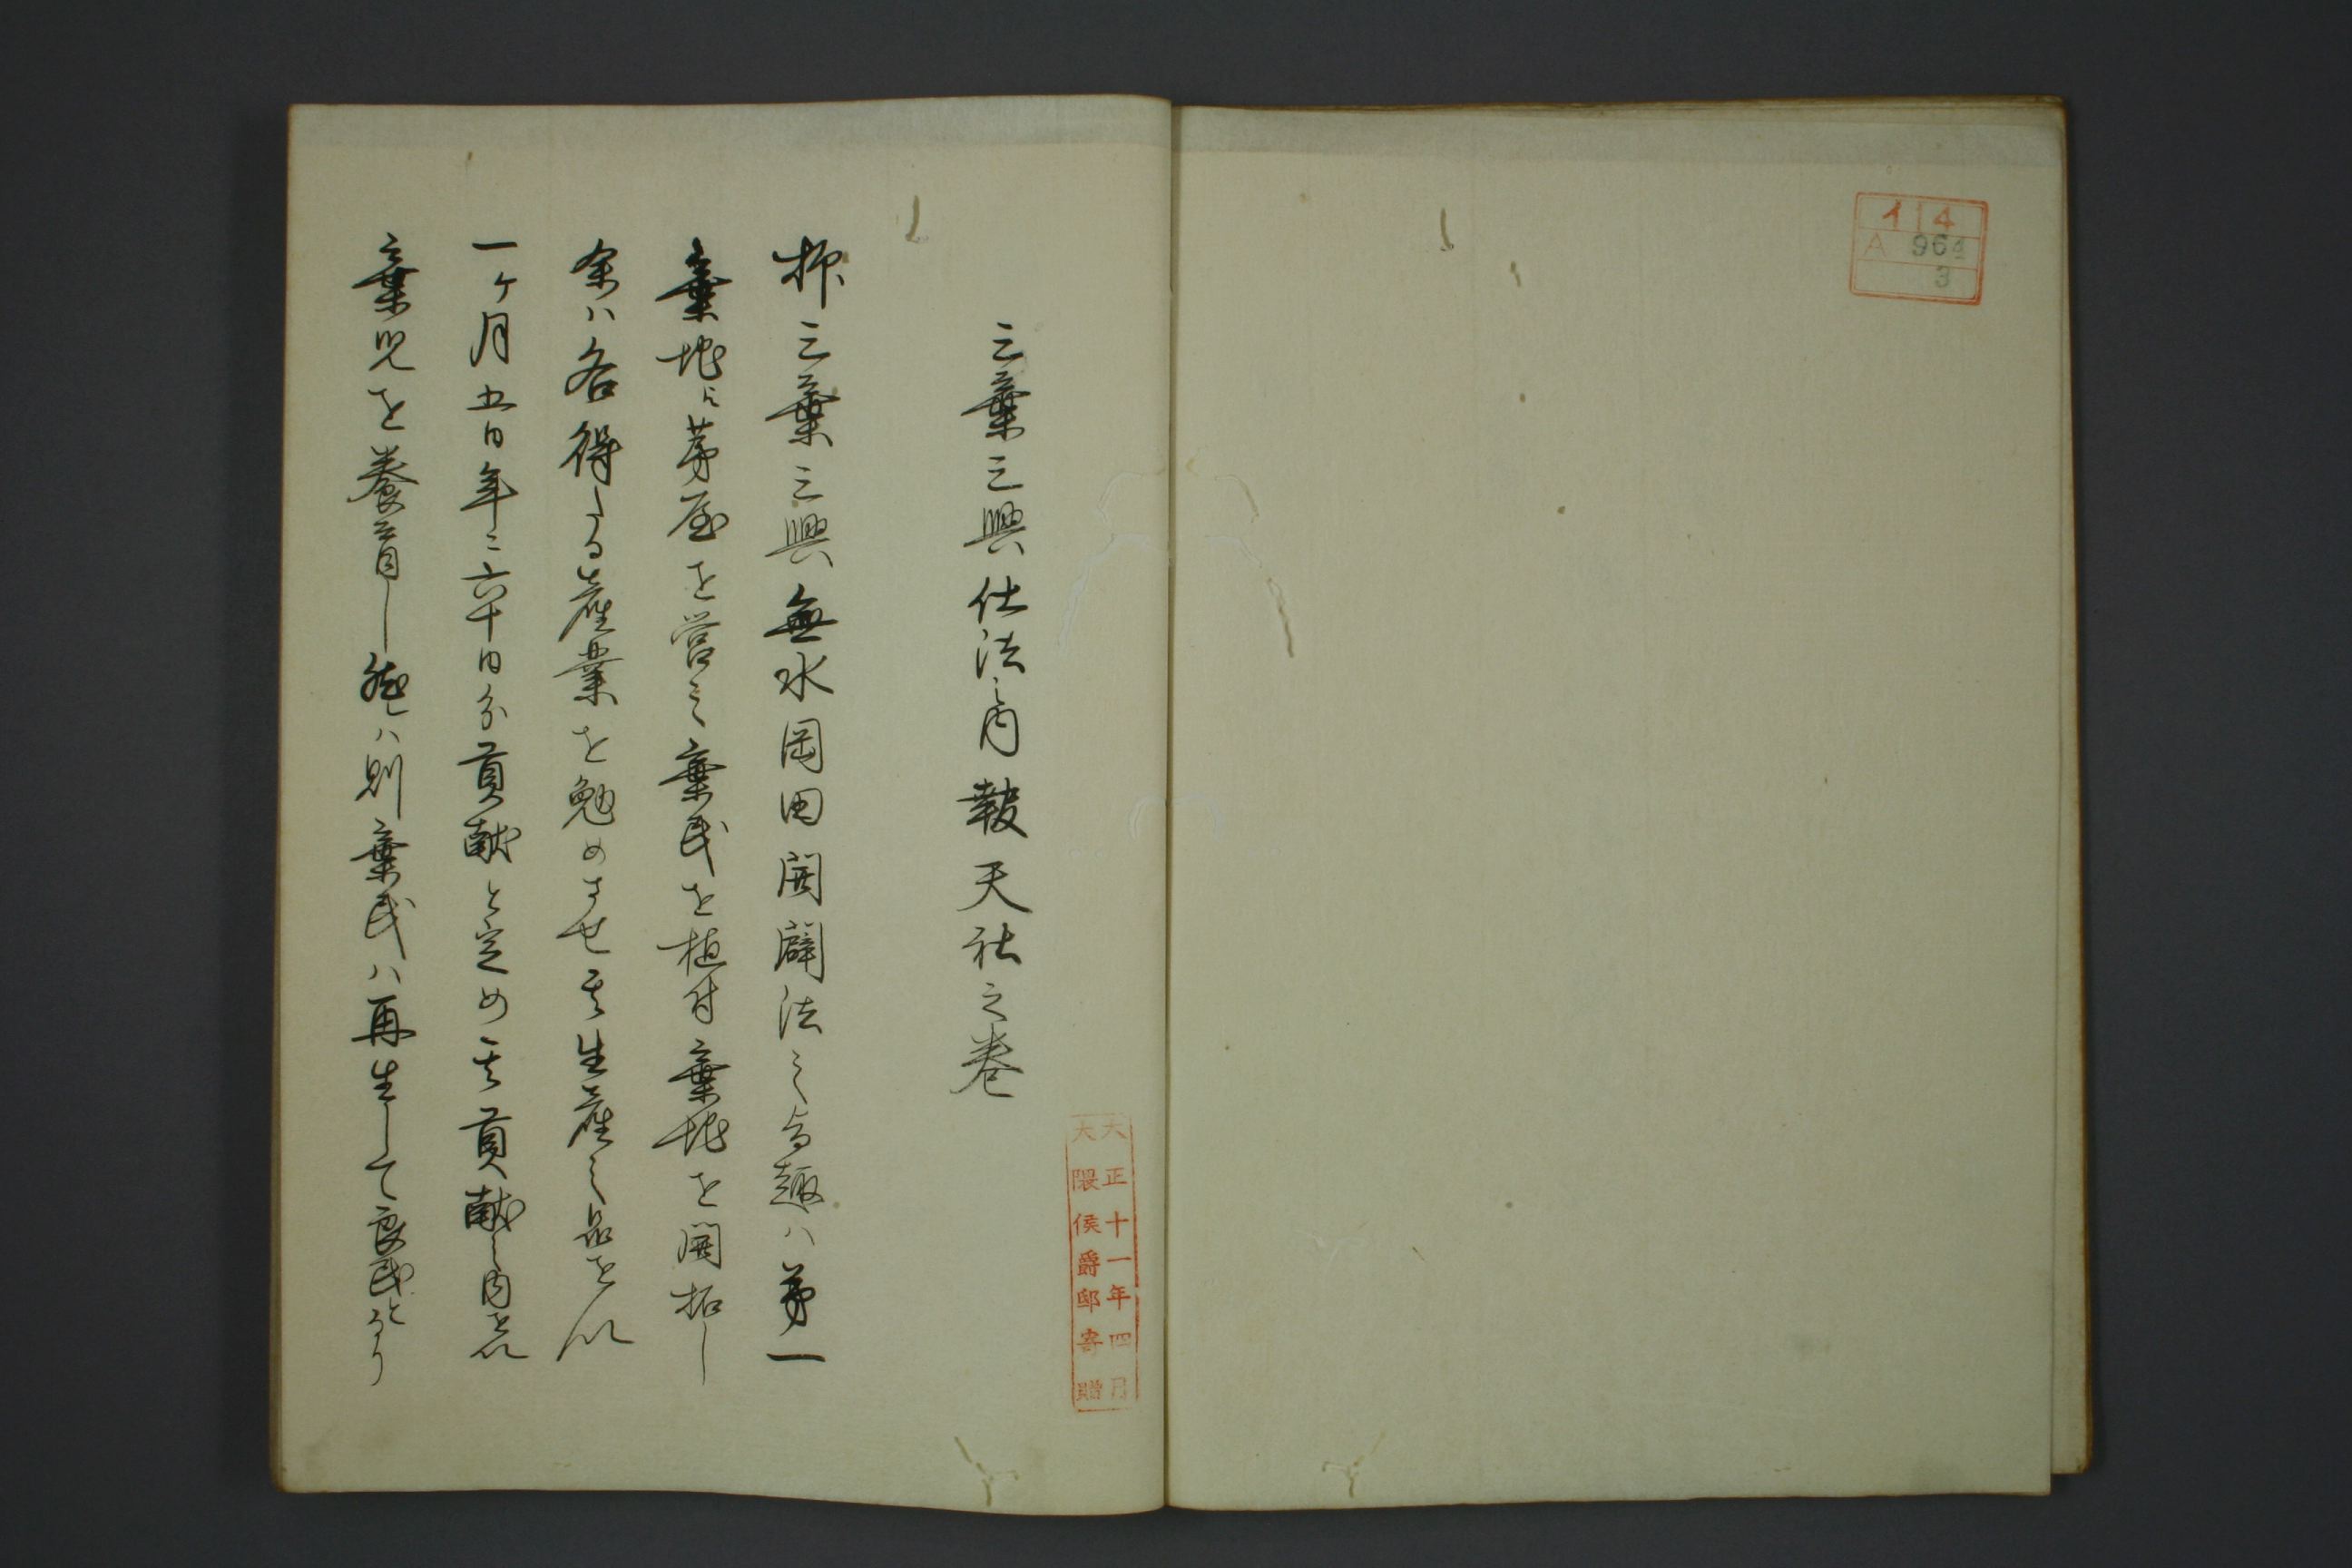 イ14
A 964
3
三棄三興仕法之内報天社之巻
大正十一年四月
大隈侯爵邸寄贈
抑三棄三興無水岡田開闢法之旨趣ハ第一
棄地に茅屋を営之棄民を植付棄地を開拓し
余ハ各得たる産業を勉めさせ其生産之品を以
一ケ月五日年ニ六十日分貢献と定め其貢献之内を以
棄児を養育し然ハ則棄民ハ再生して良民となり